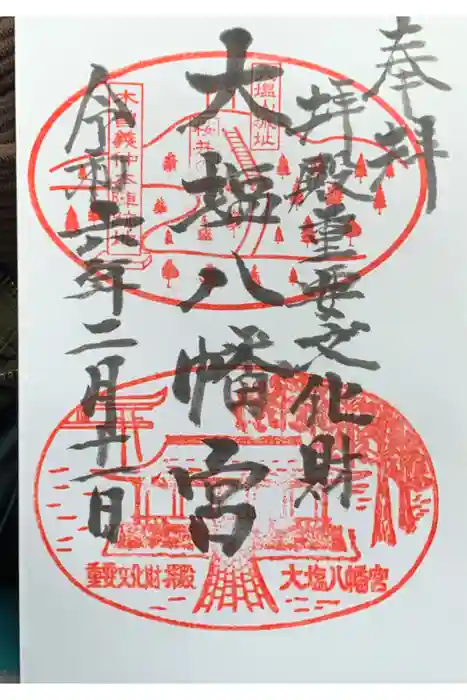 奉拝
拝殿重要文化財
大塩八幡宮
令和六年二月十一日
木曽義仲本陣
重要文化財・拝殿
大塩八幡宮